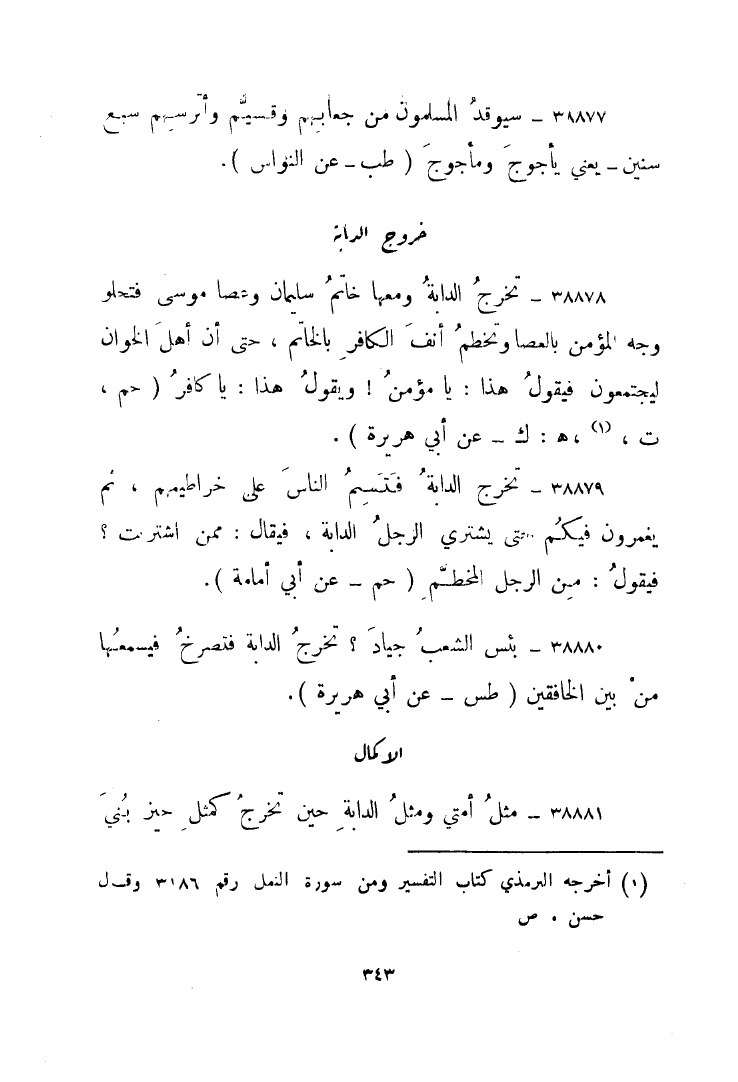 ٣٨٨٧٧ – سيوقدُ المسلمون من جعابهم وقسيِّهم وأترسهم سبع
سنين – يعني يأجوجَ ومأجوجَ ( طب – عن النواس ) .
خروج الدابة
٣٨٨٧٨ – تخرجُ الدابةُ ومعها خاتمُ سليمان وعصا موسى فتجلو
وجه المؤمن بالعصا وتخطمُ أنفَ الكافرِ بالخاتم ، حتى أن أهلَ الخوان
ليجتمعون فيقولُ هذا : يا مؤمنُ ! ويقولُ هذا : يا كافرُ ( حم ،
ت ، (١) ، ه : ك – عن أبي هريرة ) .
٣٨٨٧٩ – تخرج الدابةُ فتَسِمُ الناسَ على خراطيمهم ، ثم
يغمرون فيكُم حتى يشتري الرجلُ الدابة ، فيقال : ممن اشتريت ؟
فيقولُ : من الرجل المخطَّمِ ( حم – عن أبي أمامة ) .
٣٨٨٨٠ – بئس الشعبُ جيادَ ؟ تخرجُ الدابة فتصرخُ فيسمعُها
منْ بين الخافقين ( طس – عن أبي هريرة ) .
الاكمال
٣٨٨٨١ – مثلُ أمتي ومثلُ الدابةِ حين تخرجُ كمثلِ حيز بُنيَ
(١) أخرجه الترمذي كتاب التفسير ومن سورة النمل رقم ٣١٨٦ وقال
حسن . ص
٣٤٣